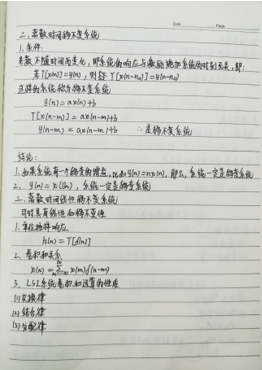 Date Page
二、离散时间移不变系统
1.条件:
参数不随时间而变化,即系统的响应与激励施加于系统的时刻无关,即:
若T[x(n)]=y(n),则 T[x(n-n₀)]=y(n-n₀)
这样的系统称为移不变系统
y(n)=ax(n)+b
T[x(n-m)]=ax(n-m)+b
y(n-m)=ax(n-m)+b ∴是移不变系统
结论:
1.如果系统有一个移变的增益,比如y(n)=nx(n),那么,系统一定是移变系统
2、 y(n)=x(),系统一定是移变系统
三、离散时间线性移不变系统
同时具有线性和移不变性
1.单位抽样响应
h(n)=T[δ(n)]
2.卷积和关系
3、LSI系统卷积和运算的性质
(1)交换律
(2)结合律
(3)分配律